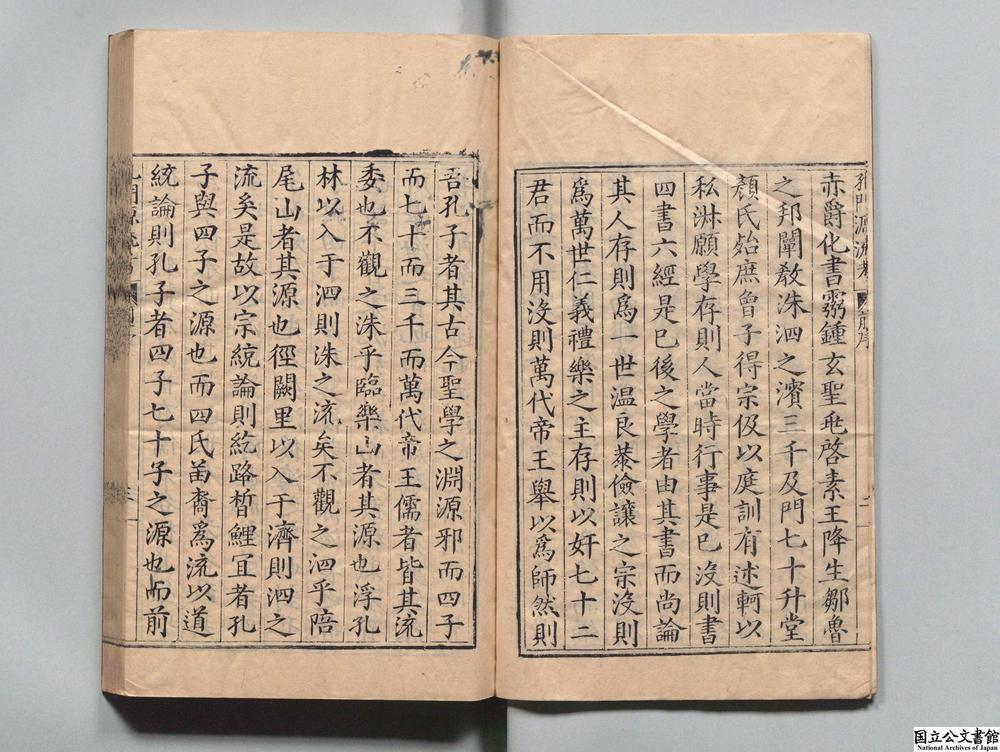 孔門源流考 前序
赤爵化書霛鍾玄聖兆啓素王降生鄒魯
之邦闡敎洙泗之濱三千及門七十升堂
顏氏殆庶曾子得宗伋以庭訓有述軻以
私淋願學存則人當時行事是已沒則書
四書六經是已後之學者由其書而尚論
其人存則爲一世温良恭儉讓之宗沒則
爲萬世仁義禮樂之主存則以奸七十二
君而不用沒則萬代帝王舉以爲師然則
吾孔子者其古今聖學之淵源邪而四子
而七十而三千而萬代帝王儒者皆其流
委也不觀之洙乎臨樂山者其源也浮孔
林以入于泗則洙之流矣不觀之泗乎陪
尾山者其源也徑闕里以入于濟則泗之
流矣是故以宗統論則紇路晳鯉冝者孔
子與四子之源也而四氏苗裔爲流以道
統論則孔子者四子七十子之源也而前
門源流
三
国立公文書館
National Archives of Japan